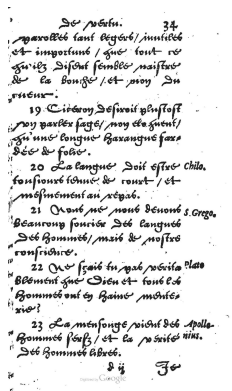 de vertu. 34
parolles tant legers/ inutiles
et importuns/ que tout ce
qu'ilz disent semble naistre
de la bouche/ et non du
cueur.
19 Ciceron desiroit plustost
un parler sage/ non eloquent/
qu'une longue harangue far-
dée de folie.
20 La langue doit estre Chilo.
tousiours tenue de court/ et
mesmement au repas.
21 Nous ne nous devons S. Grego.
beaucoup soucier des langues
des hommes/ mais de nostre
conscience.
22 Ne sçais tu pas verita Plato
blement que Dieu et tous les
hommes ont en haine mente-
rie?
23 La mensonge vient des Apollo-
hommes serfz/ et la verité nius.
des hommes libres.
d ij Je